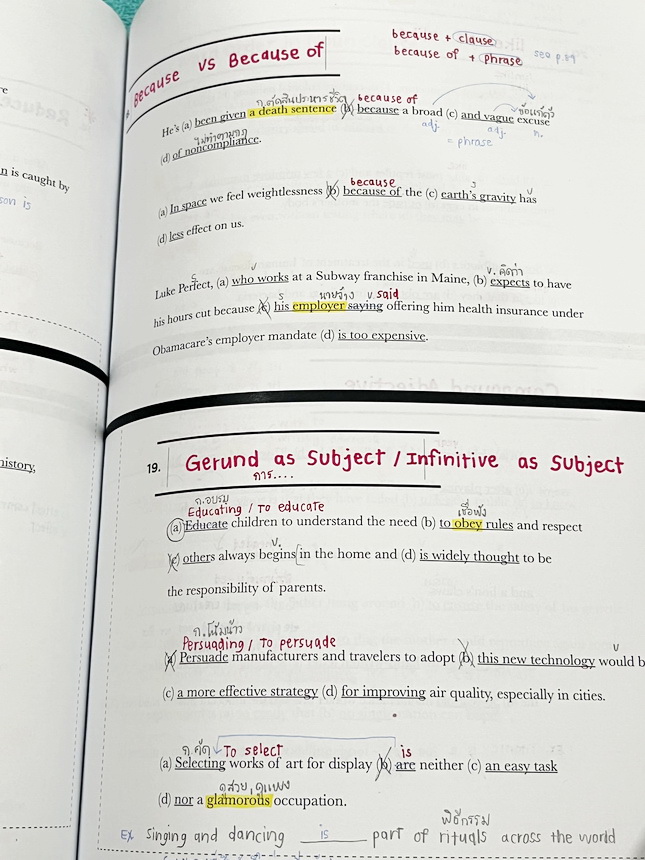 Because vs Because of
because + clause
because of + phrase
ก.ตัดสินประหารชีวิต because of
He's (a) been given a death sentence (b) because a broad (c) and vague excuse
adj. adj. n.
= phrase
ไม่ทำตามกฎ
(d) of noncompliance.
because s v
(a) In space we feel weightlessness (b) because of the (c) earth's gravity has
(d) less effect on us.
s v v. คิดว่า
Luke Perfect, (a) who works at a Subway franchise in Maine, (b) expects to have
s นายจ้าง v. said
his hours cut because (c) his employer saying offering him health insurance under
Obamacare's employer mandate (d) is too expensive.
n is caught by
son is
history,
19. Gerund as Subject / Infinitive as Subject
การ....
ก.อบรม
Educating / To educate เชื่อฟัง
(a) Educate children to understand the need (b) to obey rules and respect
v.
(c) others always begins in the home and (d) is widely thought to be
the responsibility of parents.
ก.โน้มน้าว
Persuading / To persuade v
(a) Persuade manufacturers and travelers to adopt (b) this new technology would b
(c) a more effective strategy (d) for improving air quality, especially in cities.
ก.คัด To select is
(a) Selecting works of art for display (b) are neither (c) an easy task
ดูสวย, ดูแพง
(d) nor a glamorous occupation.
พิธีกรรม
Ex Singing and dancing is part of rituals across the world